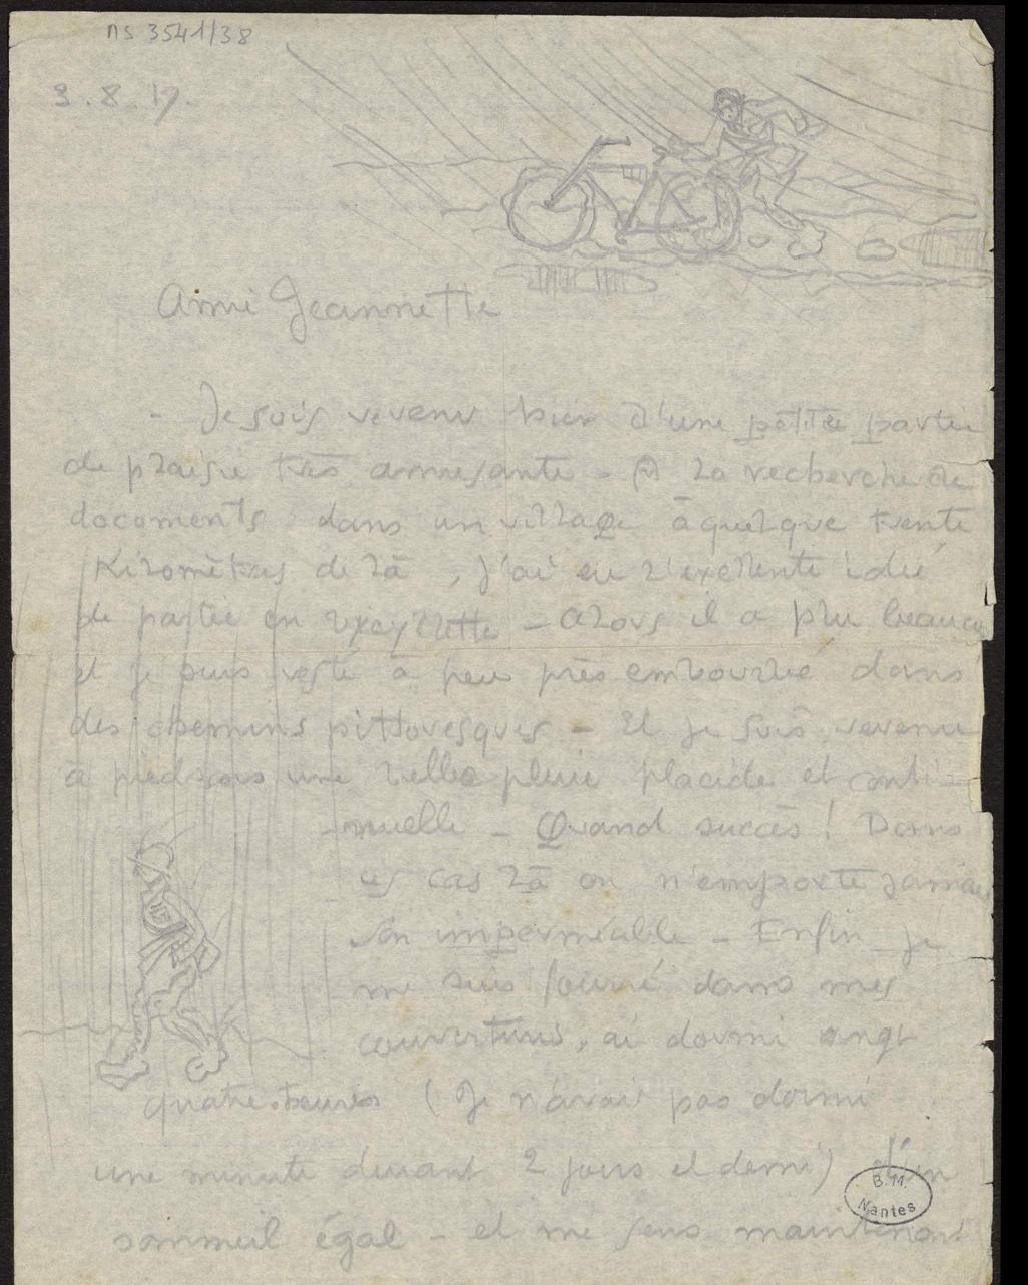 ms 3541/38
3.8.17.
Ami Jeannette
- Je suis revenu hier d'une petite partie
de plaisir très amusante - A la recherche de
documents dans un village à quelque trente
Kilomètres de là, j'ai eu l'exellente idée
de partir en bycyclette - Alors il a plu beauco
et je suis resté à peu près embourbé dans
des chemins pittoresques - Et je suis revenu
à pied sous une belle pluie placide et conti-
-nuelle - Quand succès ! Dans
ces cas là on n'emporte jamais
son imperméable - Enfin je
me suis fourré dans mes
couvertures, ai dormi vingt
quatre heures (Je n'avais pas dormi
une minute durant 2 jours et demi) d'un
sommeil égal - et me sens maintenant
B.M.
Nantes